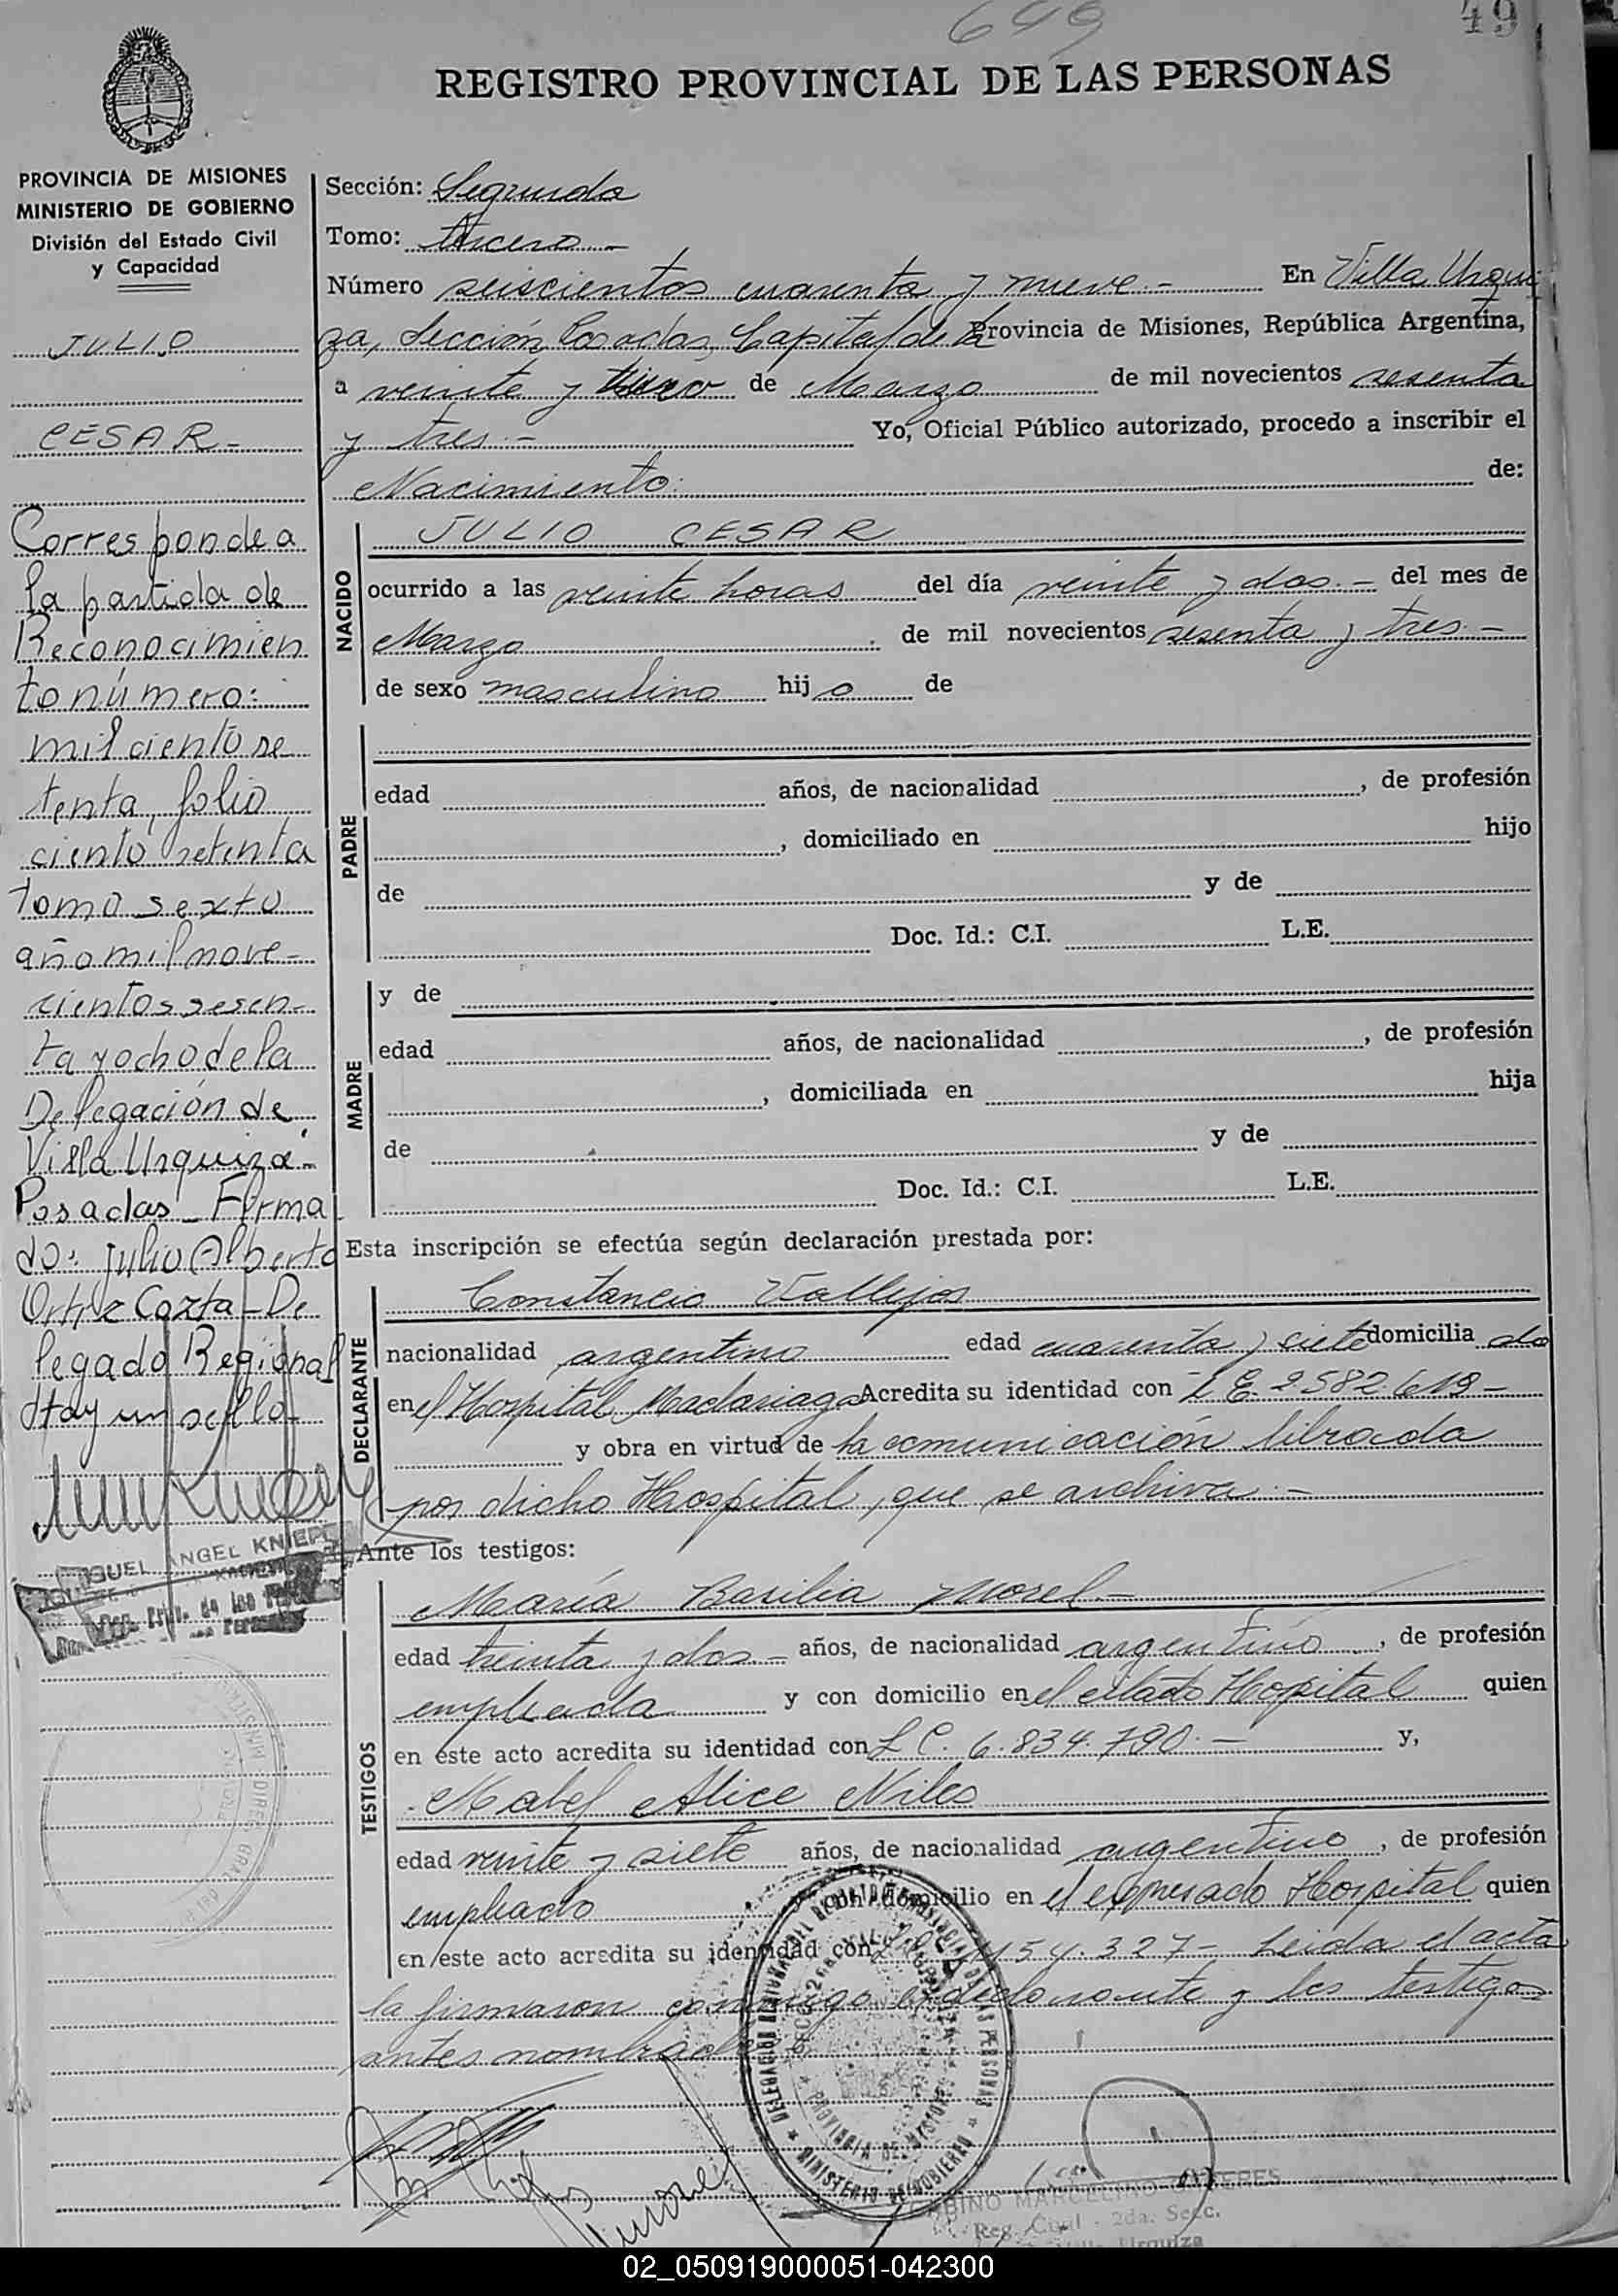 649
49
REGISTRO PROVINCIAL DE LAS PERSONAS
PROVINCIA DE MISIONES
MINISTERIO DE GOBIERNO
División del Estado Civil
y Capacidad
JULIO
CESAR -
Corresponde a
la partida de
Reconocimien
to número:
mil ciento se
tenta, folio
ciento setenta
tomo sexto
año mil nove-
cientos sesen-
ta y ocho de la
Delegación de
Villa Urquiza-
Posadas - Firma
do: Julio Alberto
Ortiz Cazta - De
legado Regional
Hay un sello-
MIGUEL ANGEL KNIEP
Sección: Segunda
Tomo: tercero -
Número seiscientos cuarenta y nueve.- En Villa Urqui
za, Sección Posadas, Capital de la Provincia de Misiones, República Argentina,
a veinte y de Marzo de mil novecientos sesenta
y tres.- Yo, Oficial Público autorizado, procedo a inscribir el
Nacimiento: de:
NACIDO
JULIO CESAR
ocurrido a las veinte horas del día veinte y dos.- del mes de
Marzo de mil novecientos sesenta y tres.-
de sexo masculino hijo de
PADRE
edad años, de nacionalidad , de profesión
, domiciliado en hijo
de y de
Doc. Id.: C.I. L.E.
MADRE
y de
edad años, de nacionalidad , de profesión
, domiciliada en hija
de y de
Doc. Id.: C.I. L.E.
Esta inscripción se efectúa según declaración prestada por:
DECLARANTE
Constancio Vallejos
nacionalidad argentino edad cuarenta y siete domicilia do
en el Hospital Madariaga Acredita su identidad con L.E. 2.582.619-
y obra en virtud de la comunicación librada
por dicho Hospital, que se archiva.-
Ante los testigos:
TESTIGOS
María Basilia Morel-
edad treinta y dos- años, de nacionalidad argentino , de profesión
empleada y con domicilio en el citado Hospital quien
en este acto acredita su identidad con L C. 6.834.790.- y,
Mabel Alice Niles
edad veinte y siete años, de nacionalidad argentino , de profesión
empleado con domicilio en el expresado Hospital quien
en este acto acredita su identidad con 154.327- Leida el acta
la firmaron conmigo el declarante y los testigos
antes nombrados
DELEGACION DE LAS PERSONAS
PROVINCIA DE MISIONES
MINISTERIO DE GOBIERNO
MARCELINO
Reg. Civil - 2da. Secc.
Urquiza
02_050919000051-042300